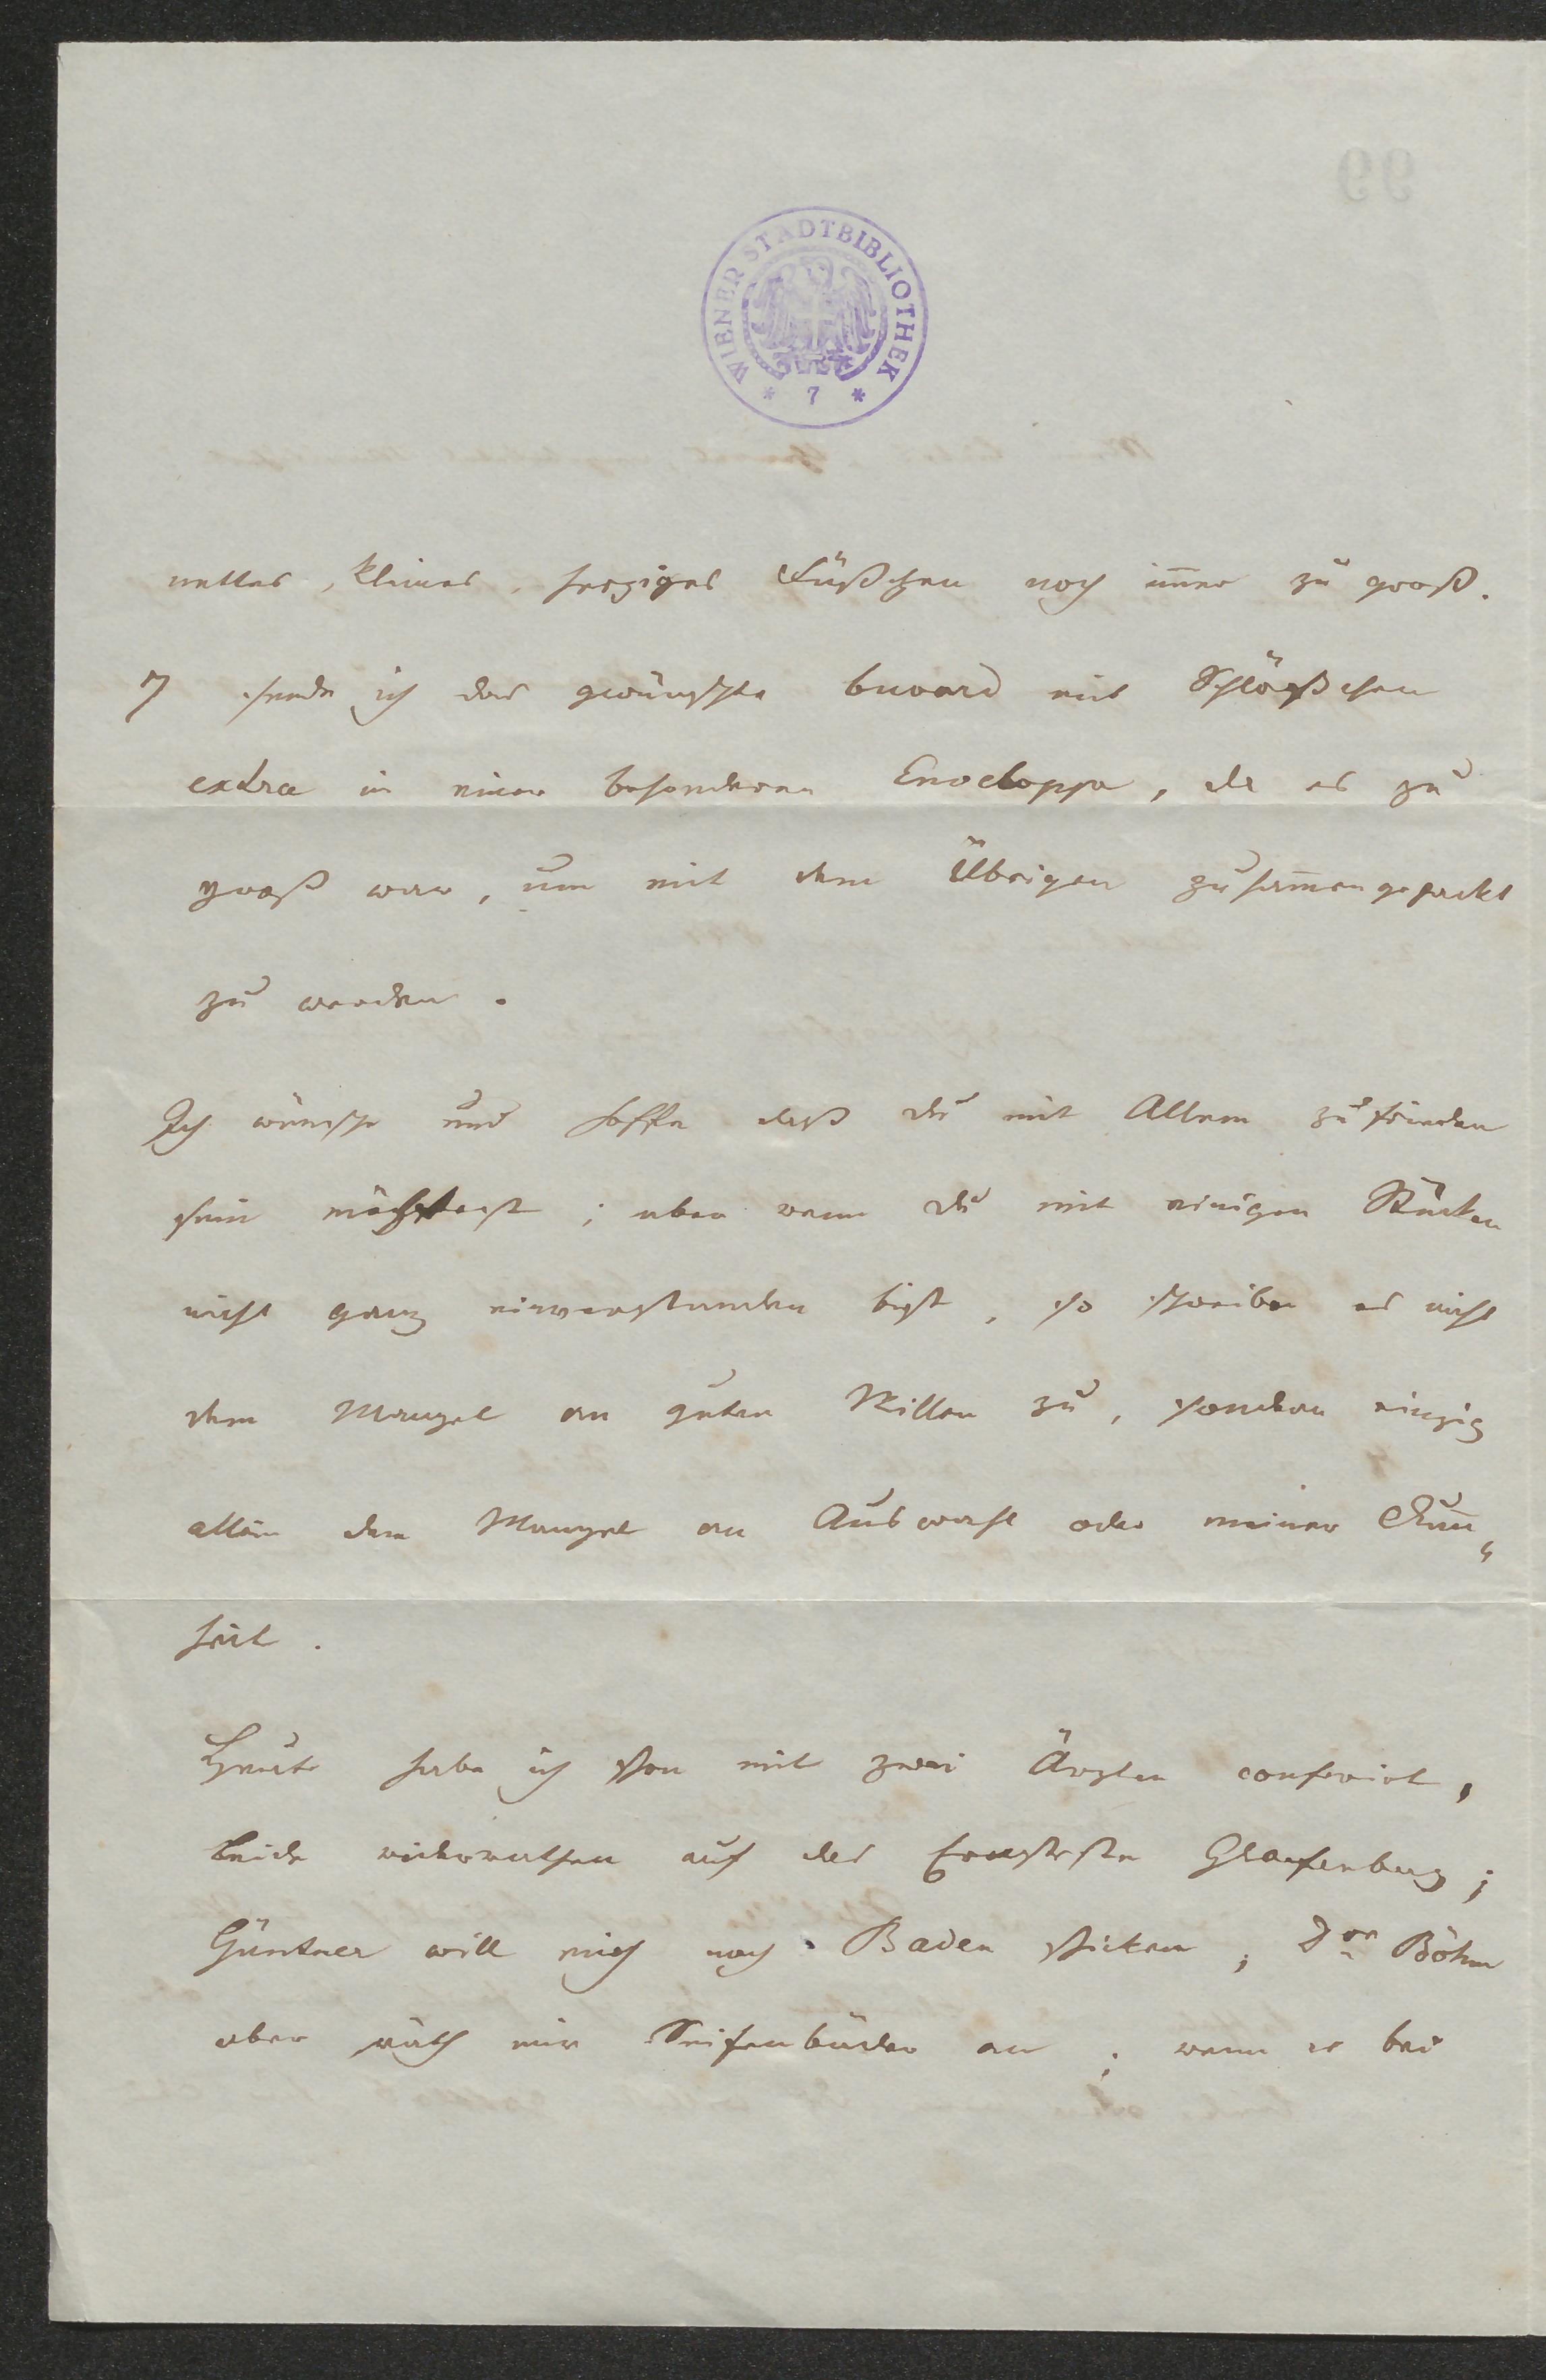 WIENER STADTBIBLIOTHEK
* 7 *
nettes, kleines, herziges Füßchen noch im̅er zu groß.
7 sende ich das gewünschte buvard mit Schlößchen
extra in einer besonderen Enveloppe, da es zu
groß war, um mit dem Übrigen zusam̅engepackt
zu werden.
Ich wünsche und hoffe daß du mit Allem zufrieden
sein möchtest; aber wenn du mit einigen Stücken
nicht ganz einverstanden bist, so schreibe es nicht
dem Mangel an guten Willen zu, sondern einzig
allein dem Mangel an Auswahl oder meiner Dum̅„
heit.
Heute habe ich schon mit zwei Ärzten conferirt,
beide widerrathen auf das Ernsteste Grafenberg;
Güntner will mich nach Baden schicken, Dor Böhm
aber räth mir Seifenbäder an; wenn er bei